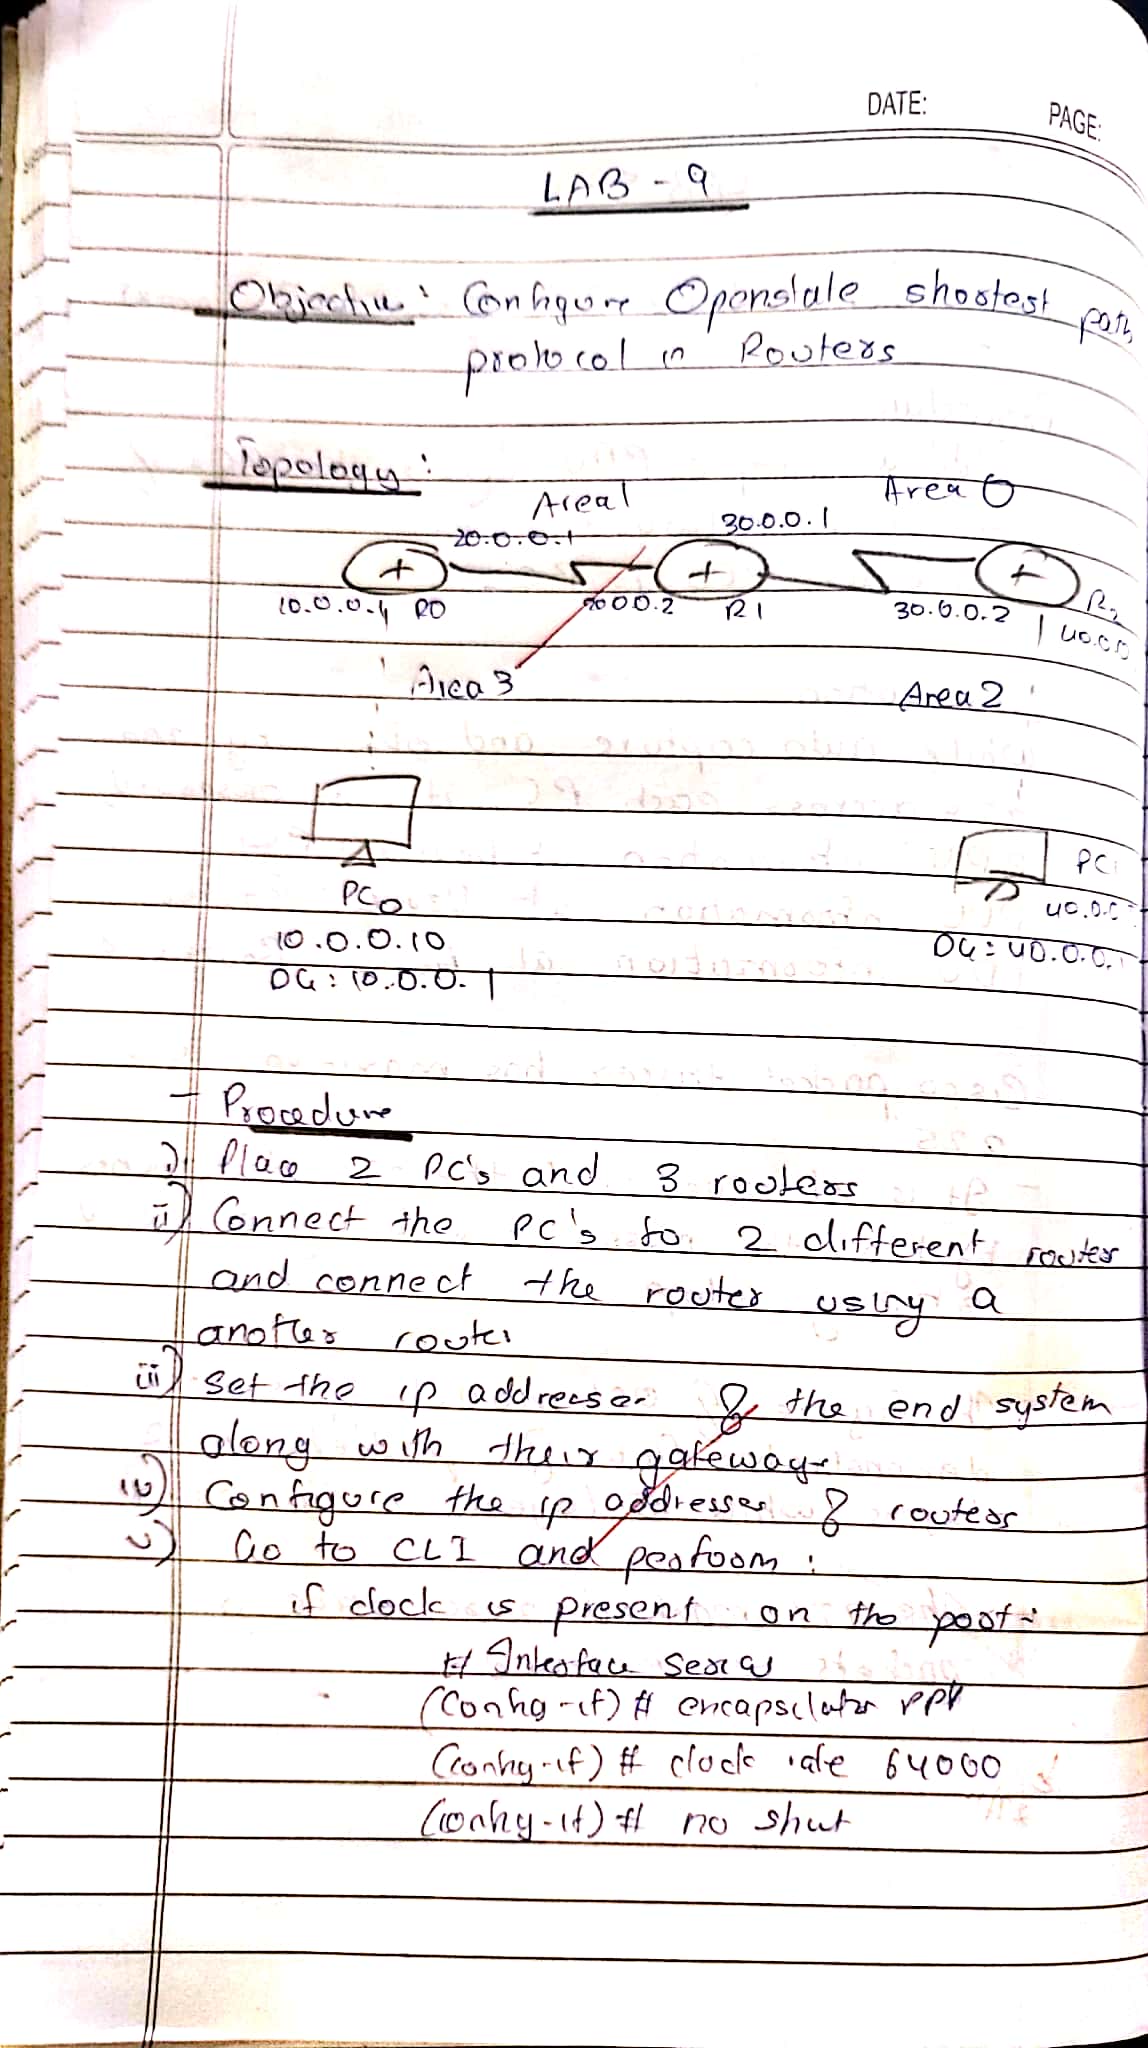 DATE:
PAGE:
LAB - 9
Objective : Configure Openstate shostest path
protocol in Routers
Topology :
Area1
Area 0
20.0.0.1
30.0.0.1
10.0.0.1 R0
20.0.0.2
R1
30.0.0.2
R2
40.0.0
Area 3
Area 2
PC0
PC1
10.0.0.10
40.0.0
DG : 10.0.0.1
DG : 40.0.0.1
- Procedure
i) Place 2 PC's and 3 routers
ii) Connect the PC's to 2 different router
and connect the router using a
another router
iii) Set the ip addresses & the end system
along with their gateway
iv) Configure the ip addresses & routers
v) Go to CLI and perfoom :
if clock is present on the port :
# Interface Serial
(Config-if) # encapsulation ppp
(config-if) # clock rate 64000
(config-if) # no shut